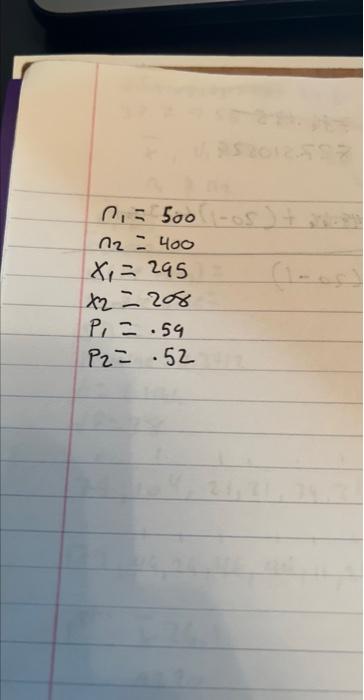 n₁ = 500
n₂ = 400
X₁ = 295
X₂ = 208
P₁ = .59
P₂ = .52